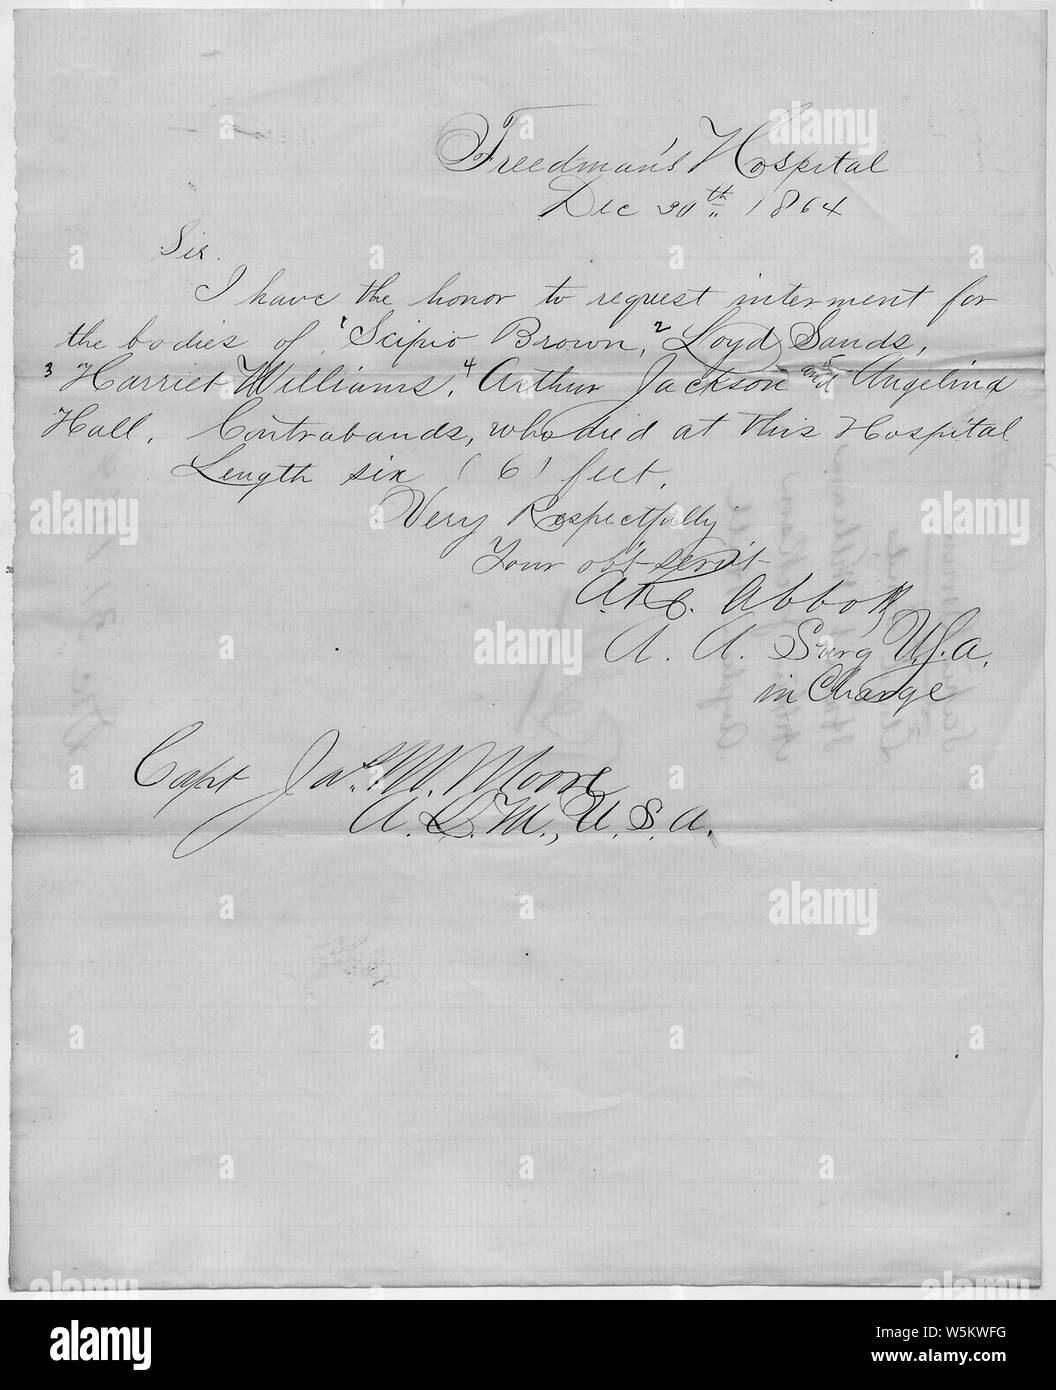 Freedman's Hospital
Dec 30th 1864
Sir.
I have the honor to request interment for
the bodies of 1 Scipio Brown, 2 Loyd Sands,
3 Harriet Williams, 4 Arthur Jackson and 5 Angelina
Hall. Contrabands, who died at this Hospital
Length six (6) feet.
Very Respectfully
Your obt servt
Abbott
A. A. Surg U.S.A.
in Charge
Capt Jas. M. Moore
A. Q. M., U.S.A.
alamy
Image ID: W5KWFG
www.alamy.com